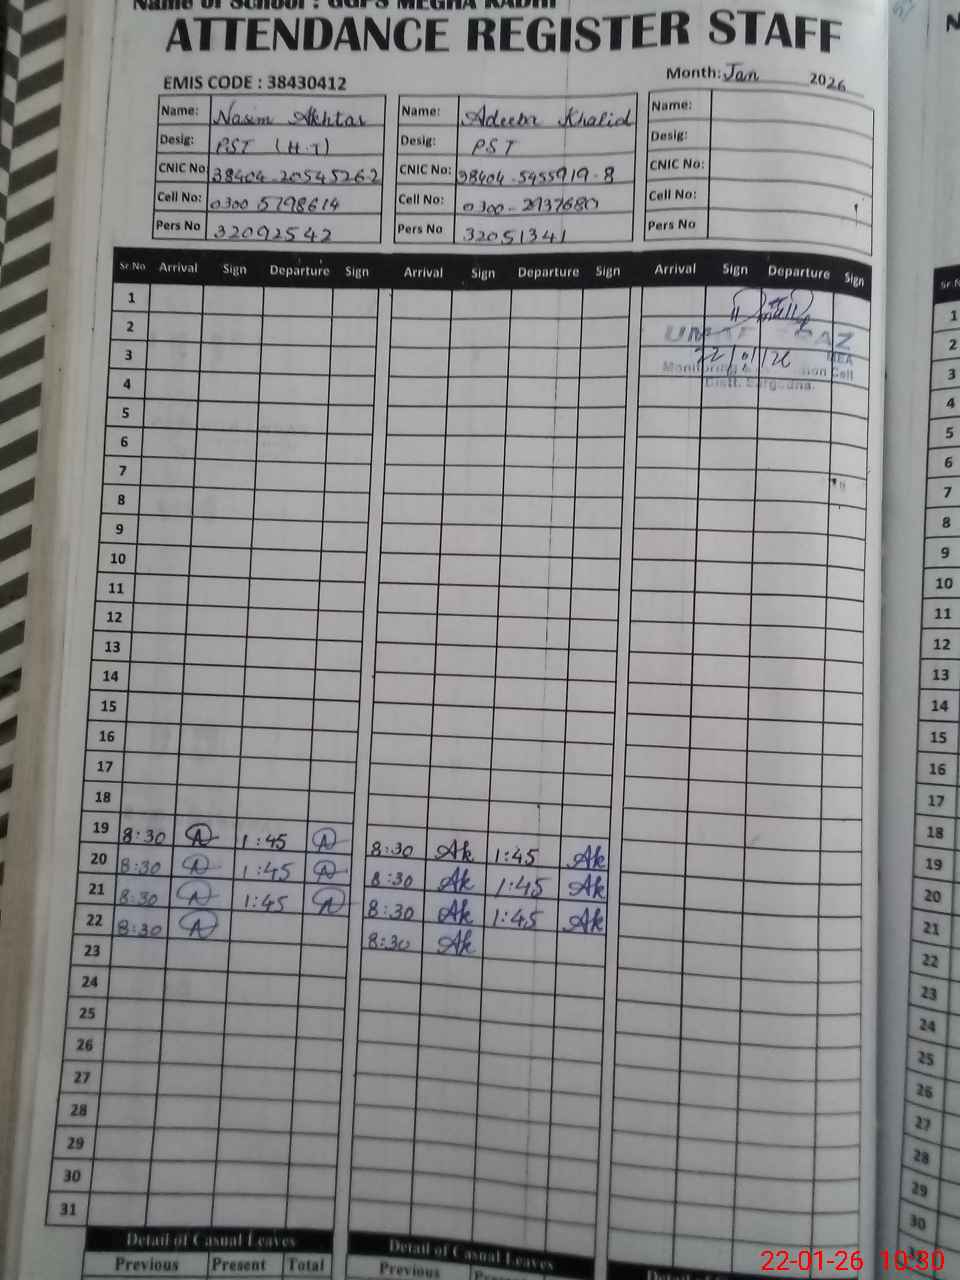 Name of School : GGPS MEGHA KADHI
ATTENDANCE REGISTER STAFF
EMIS CODE : 38430412
Month: Jan 2026
Name: Nasim Akhtar
Desig: PST (H.T)
CNIC No: 38404-2054526-2
Cell No: 0300 5798614
Pers No 32092542
Name: Adeeba Khalid
Desig: PST
CNIC No: 38404-5455919-8
Cell No: 0300-2937680
Pers No 32051341
Name:
Desig:
CNIC No:
Cell No:
Pers No
Sr.No Arrival Sign Departure Sign Arrival Sign Departure Sign Arrival Sign Departure Sign
1
2
3 22/01/26 MEA
4 Distt. Sargodha.
5
6
7
8
9
10
11
12
13
14
15
16
17
18
19 8:30 A 1:45 A 8:30 Ak 1:45 Ak
20 8:30 A 1:45 A 8:30 Ak 1:45 Ak
21 8:30 A 1:45 A 8:30 Ak 1:45 Ak
22 8:30 A 8:30 Ak
23
24
25
26
27
28
29
30
31
Detail of Casual Leaves Detail of Casual Leaves
Previous Present Total Previous
Sr.
1
2
3
4
5
6
7
8
9
10
11
12
13
14
15
16
17
18
19
20
21
22
23
24
25
26
27
28
29
30
22-01-26 10:30